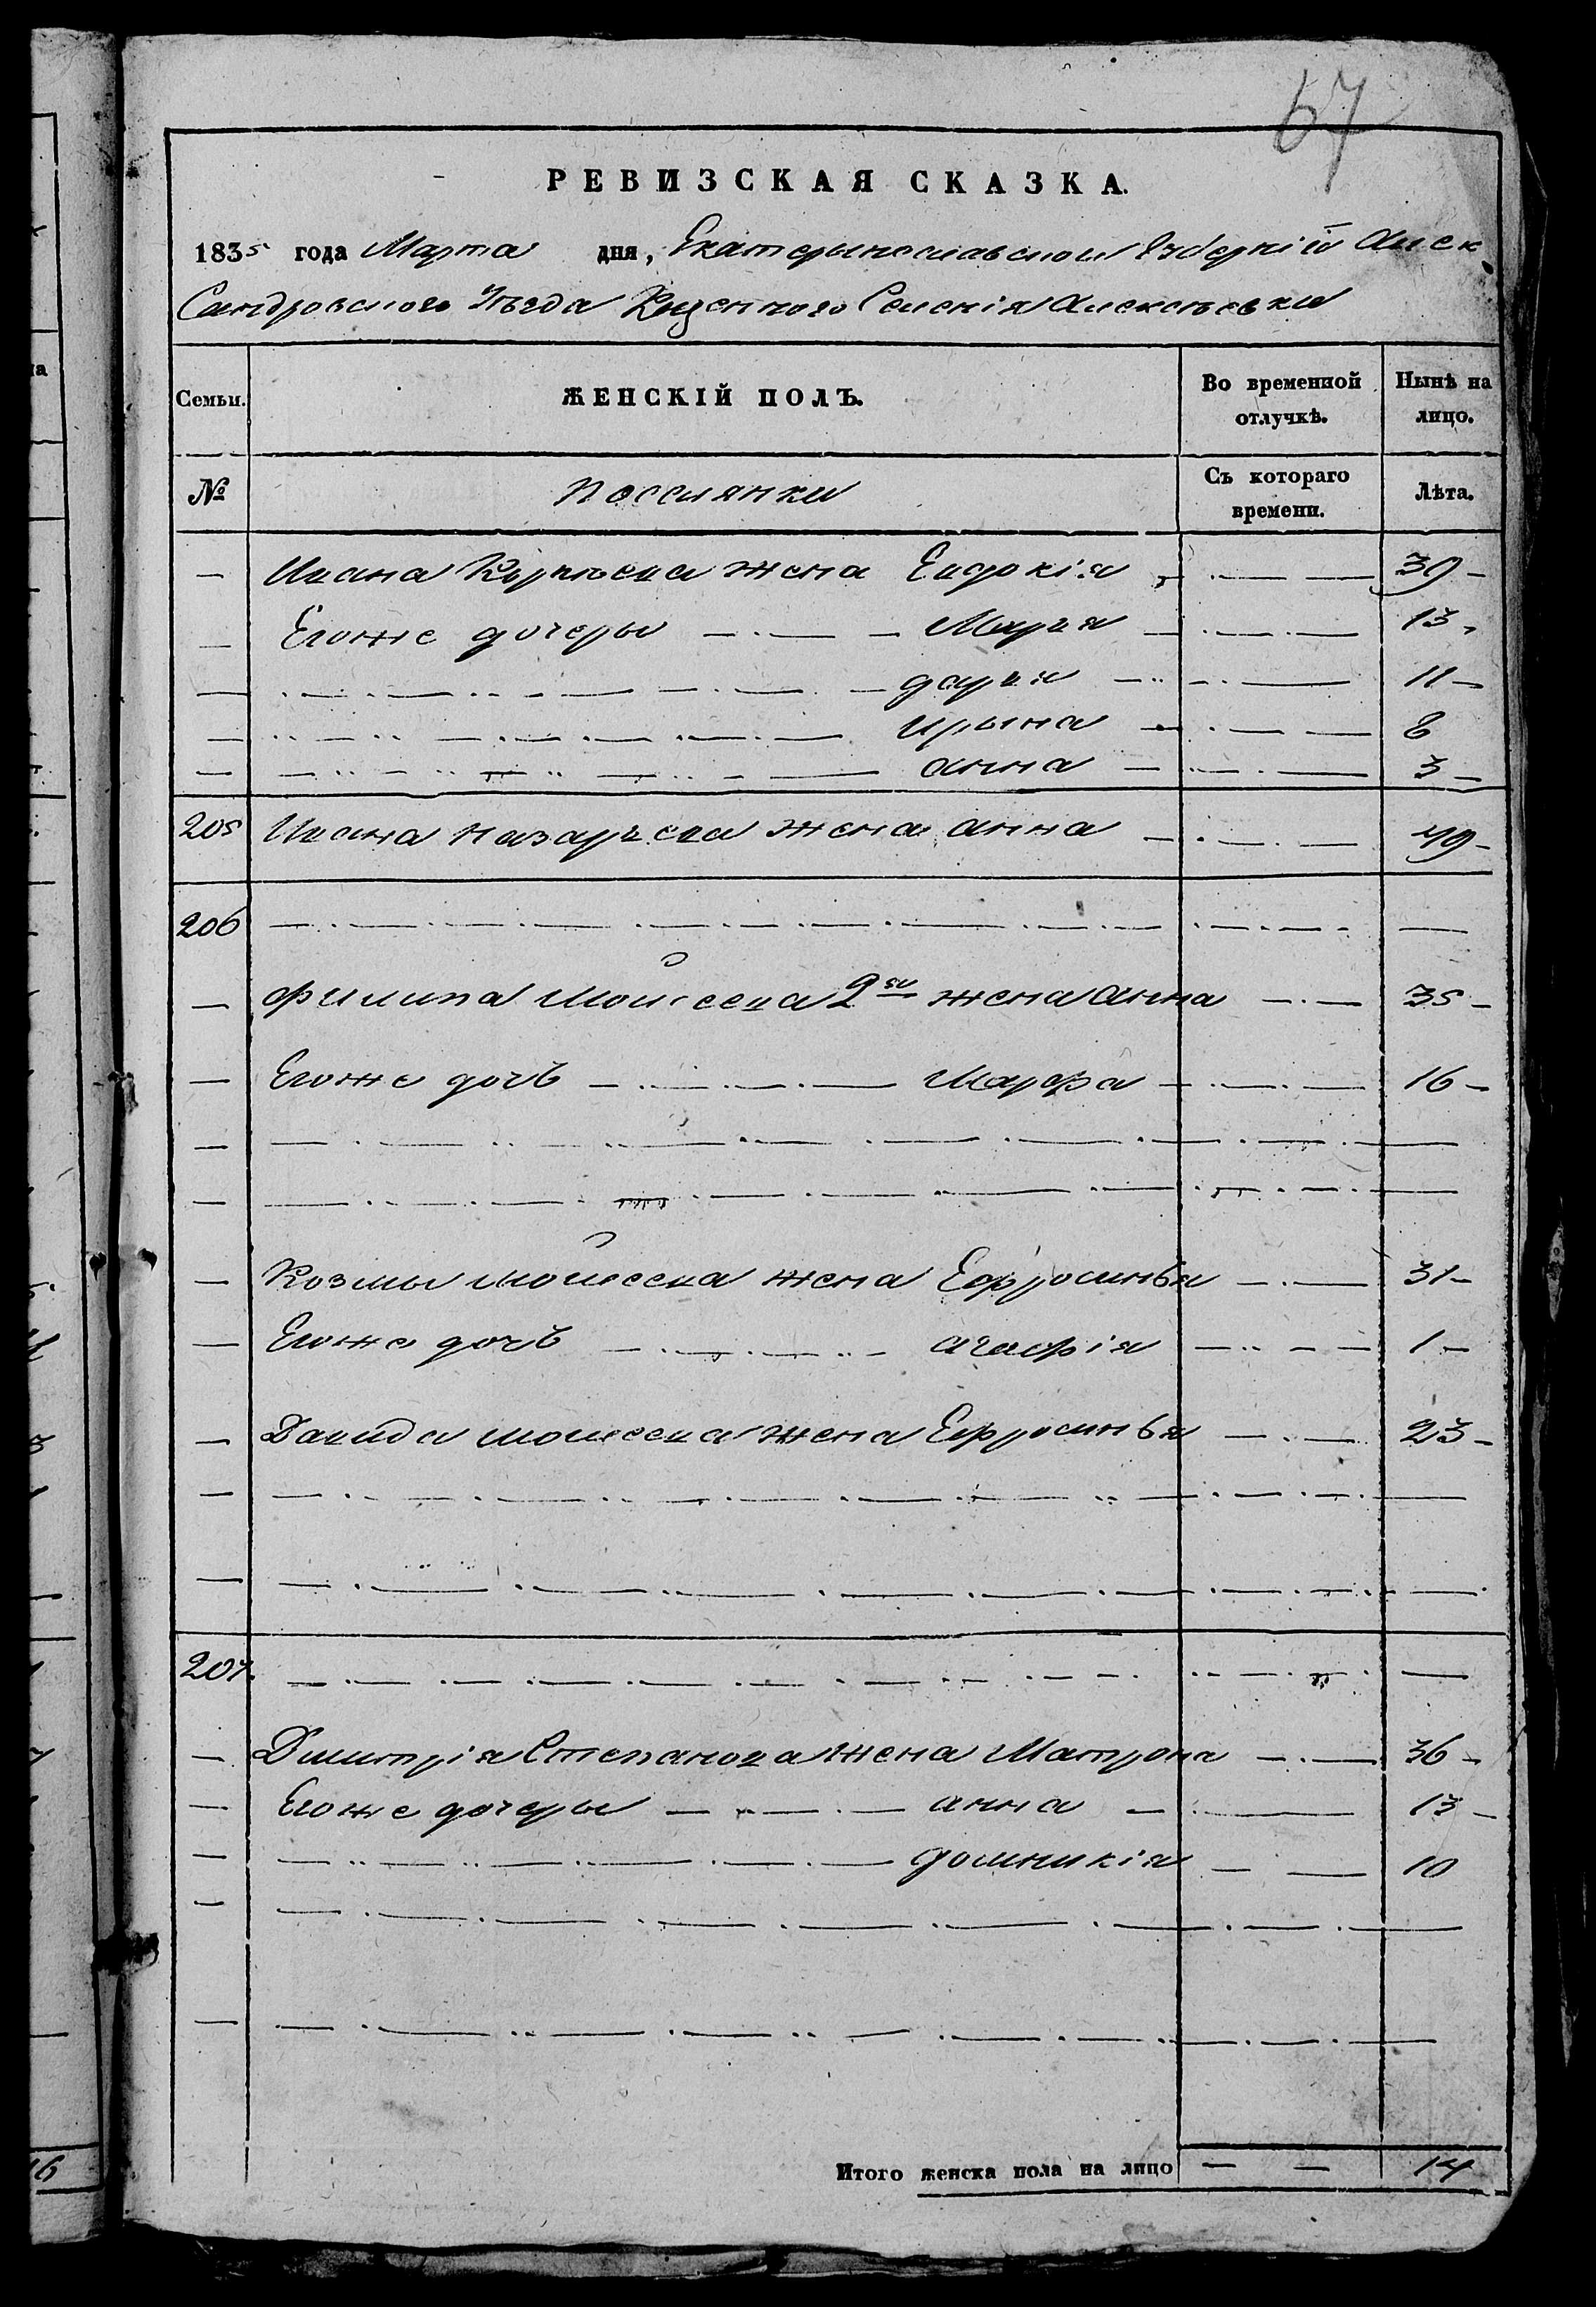 67
РЕВИЗСКАЯ СКАЗКА.
1835 года Марта дня, Екатерынославской Губерніи Алек
сандровского Уѣзда Казенного Селенія Алексѣевки
Семьи. ЖЕНСКІЙ ПОЛЪ. Во временной отлучкѣ. Нынѣ на лицо.
№ Поселянки Съ котораго времени. Лѣта.
— Ивана Корнѣева жена Евдокія — 39
— Егоже дочеры — Марья — 13
— — дарья — 11
— — Ирына — 8
— — анна — 3
205 Ивана Назарьева жена анна — 49
206 — — —
— Филипа Мойсеева 2ая жена анна — 35
— Егоже дочь — Марфа — 16
— — — —
— — — —
— Козмы Мойсеева жена Ефросинья — 31
— Егоже дочь — агафія — 1
— Давида Моисеева жена Ефросинья — 23
— — — —
— — — —
207. — — —
— Дмитрія Степанова жена Матрона — 36
— Егоже дочеры — анна — 13
— — домникія — 10
— — — —
— — — —
Итого женска пола на лицо — — 14
16